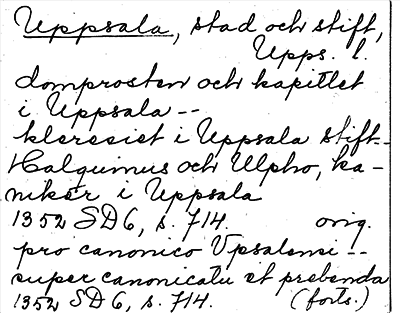 Uppsala, stad och stift,
Upps. l.
domprosten och kapitlet
i Uppsala --
kleresiet i Uppsala stift-
Halquinus och Ulpho, ka-
niker i Uppsala
1352 SD 6, s. 714. orig.
pro canonico Vpsalensi --
super canonicatu et prebenda
1352 SD 6, s. 714. (forts.)